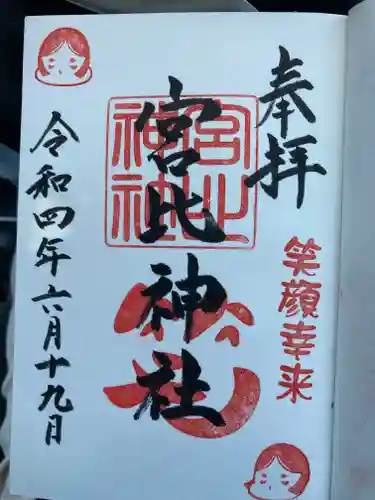 奉拝
笑顔幸来
宮比神社
宮比神社
令和四年六月十九日